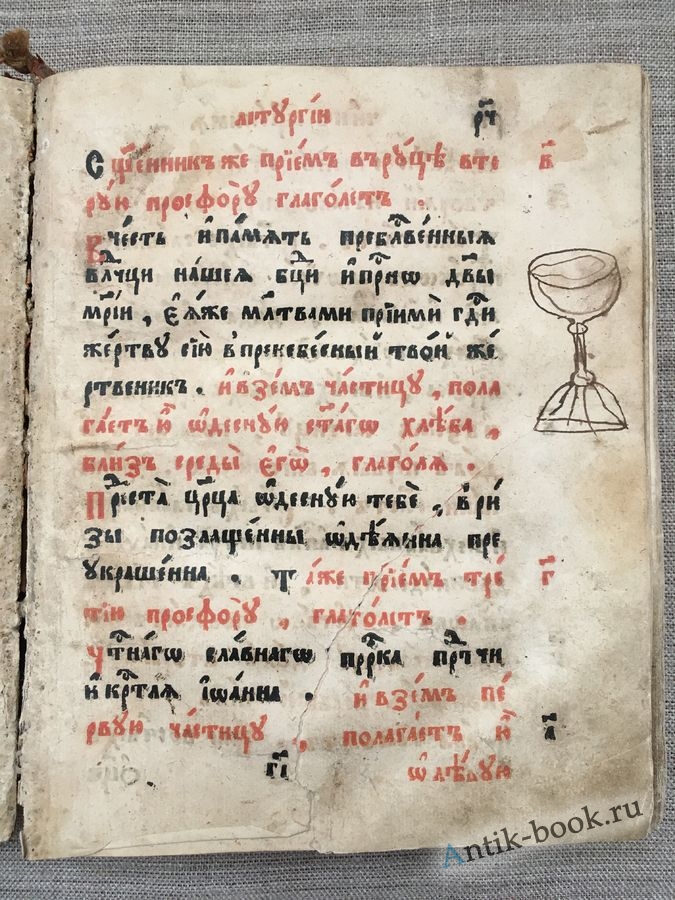 літургїи р҃ч
Сщ҃е́нникъ же прїе́мъ въ рꙋцѣ̀ вто в҃
рꙋ́ю просфорꙋ̀ глаго́летъ .
В че́сть и҆ па́мѧть пребл҃гве́нныѧ
влⷣчцы на́шеѧ бцⷣы и҆ прⷭ҇нѡ дв҃ы
мр҃і́и , е҆ѧ́же мл҃твами прїимѝ гдⷭ҇и
же́ртвꙋ сїю̀ в пренебе́сный тво́й же́
ртвенникъ . и҆ взе́мъ ча́стицꙋ , пола
га́етъ ю҆̀ ѡ҆деснꙋ́ю ст҃а́гѡ хлѣ́ба ,
бли́зъ среды̀ е҆гѡ̀ , глаго́лѧ .
Преⷣста̀ цр҃ца ѡ҆деснꙋ́ю тебє̀ , в ри́
зы позлаще́нны ѡ҆дѣ́ѧнна пре
ꙋкраше́нна . Та́же прїе́мъ тре́ г҃
тїю просфорꙋ̀ , глаго́летъ .
Чⷭ҇тна́гѡ сла́внагѡ прⷪ҇рка прⷣтчи
и҆ крⷭ҇тлѧ і҆ѡа́нна . и҆ взе́мъ пе́
рвꙋю ча́стицꙋ , полага́етъ ю҆̀ а҃
г҃і ѡ҆ лѣ́вꙋю
Antik-book.ru